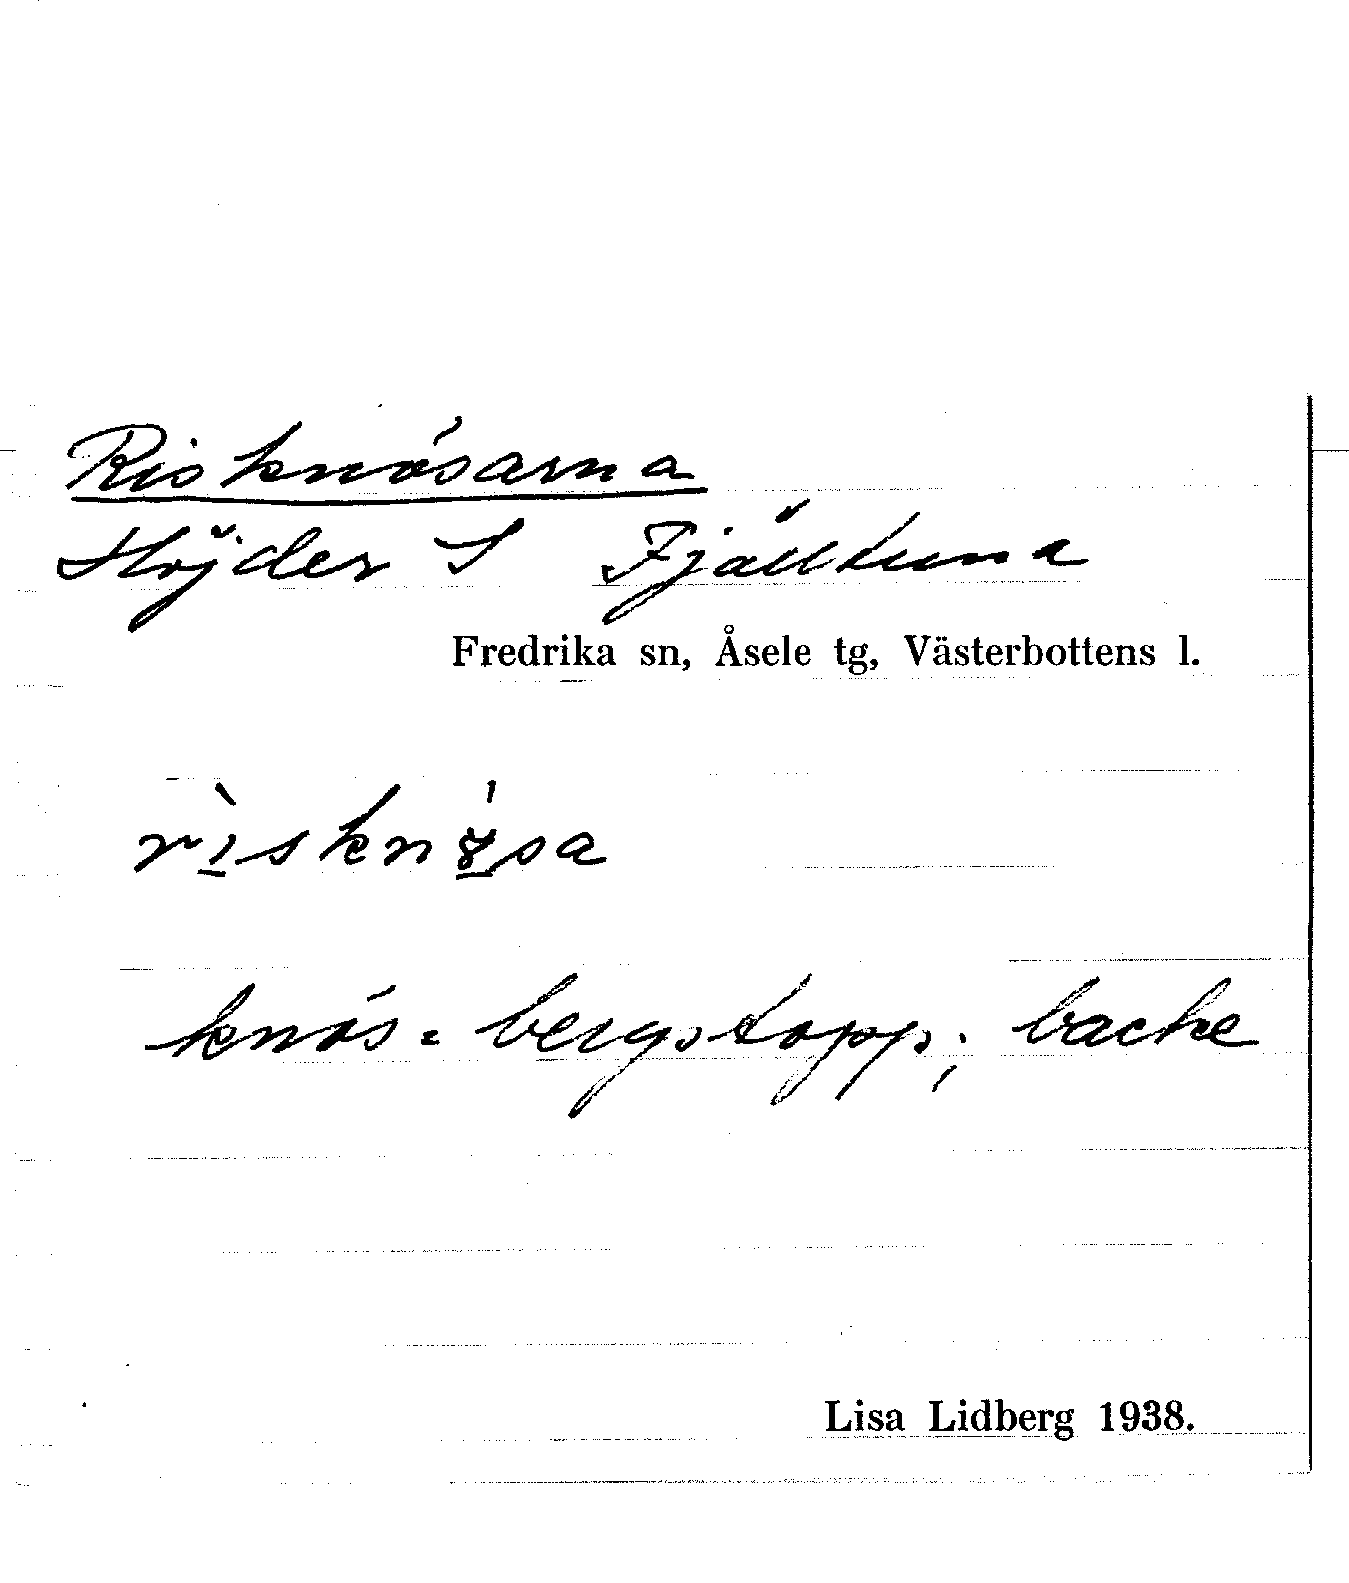 Risknösarna
Höjder S Fjälltuna
Fredrika sn, Åsele tg, Västerbottens l.
knös = bergstopp; backe
Lisa Lidberg 1938.